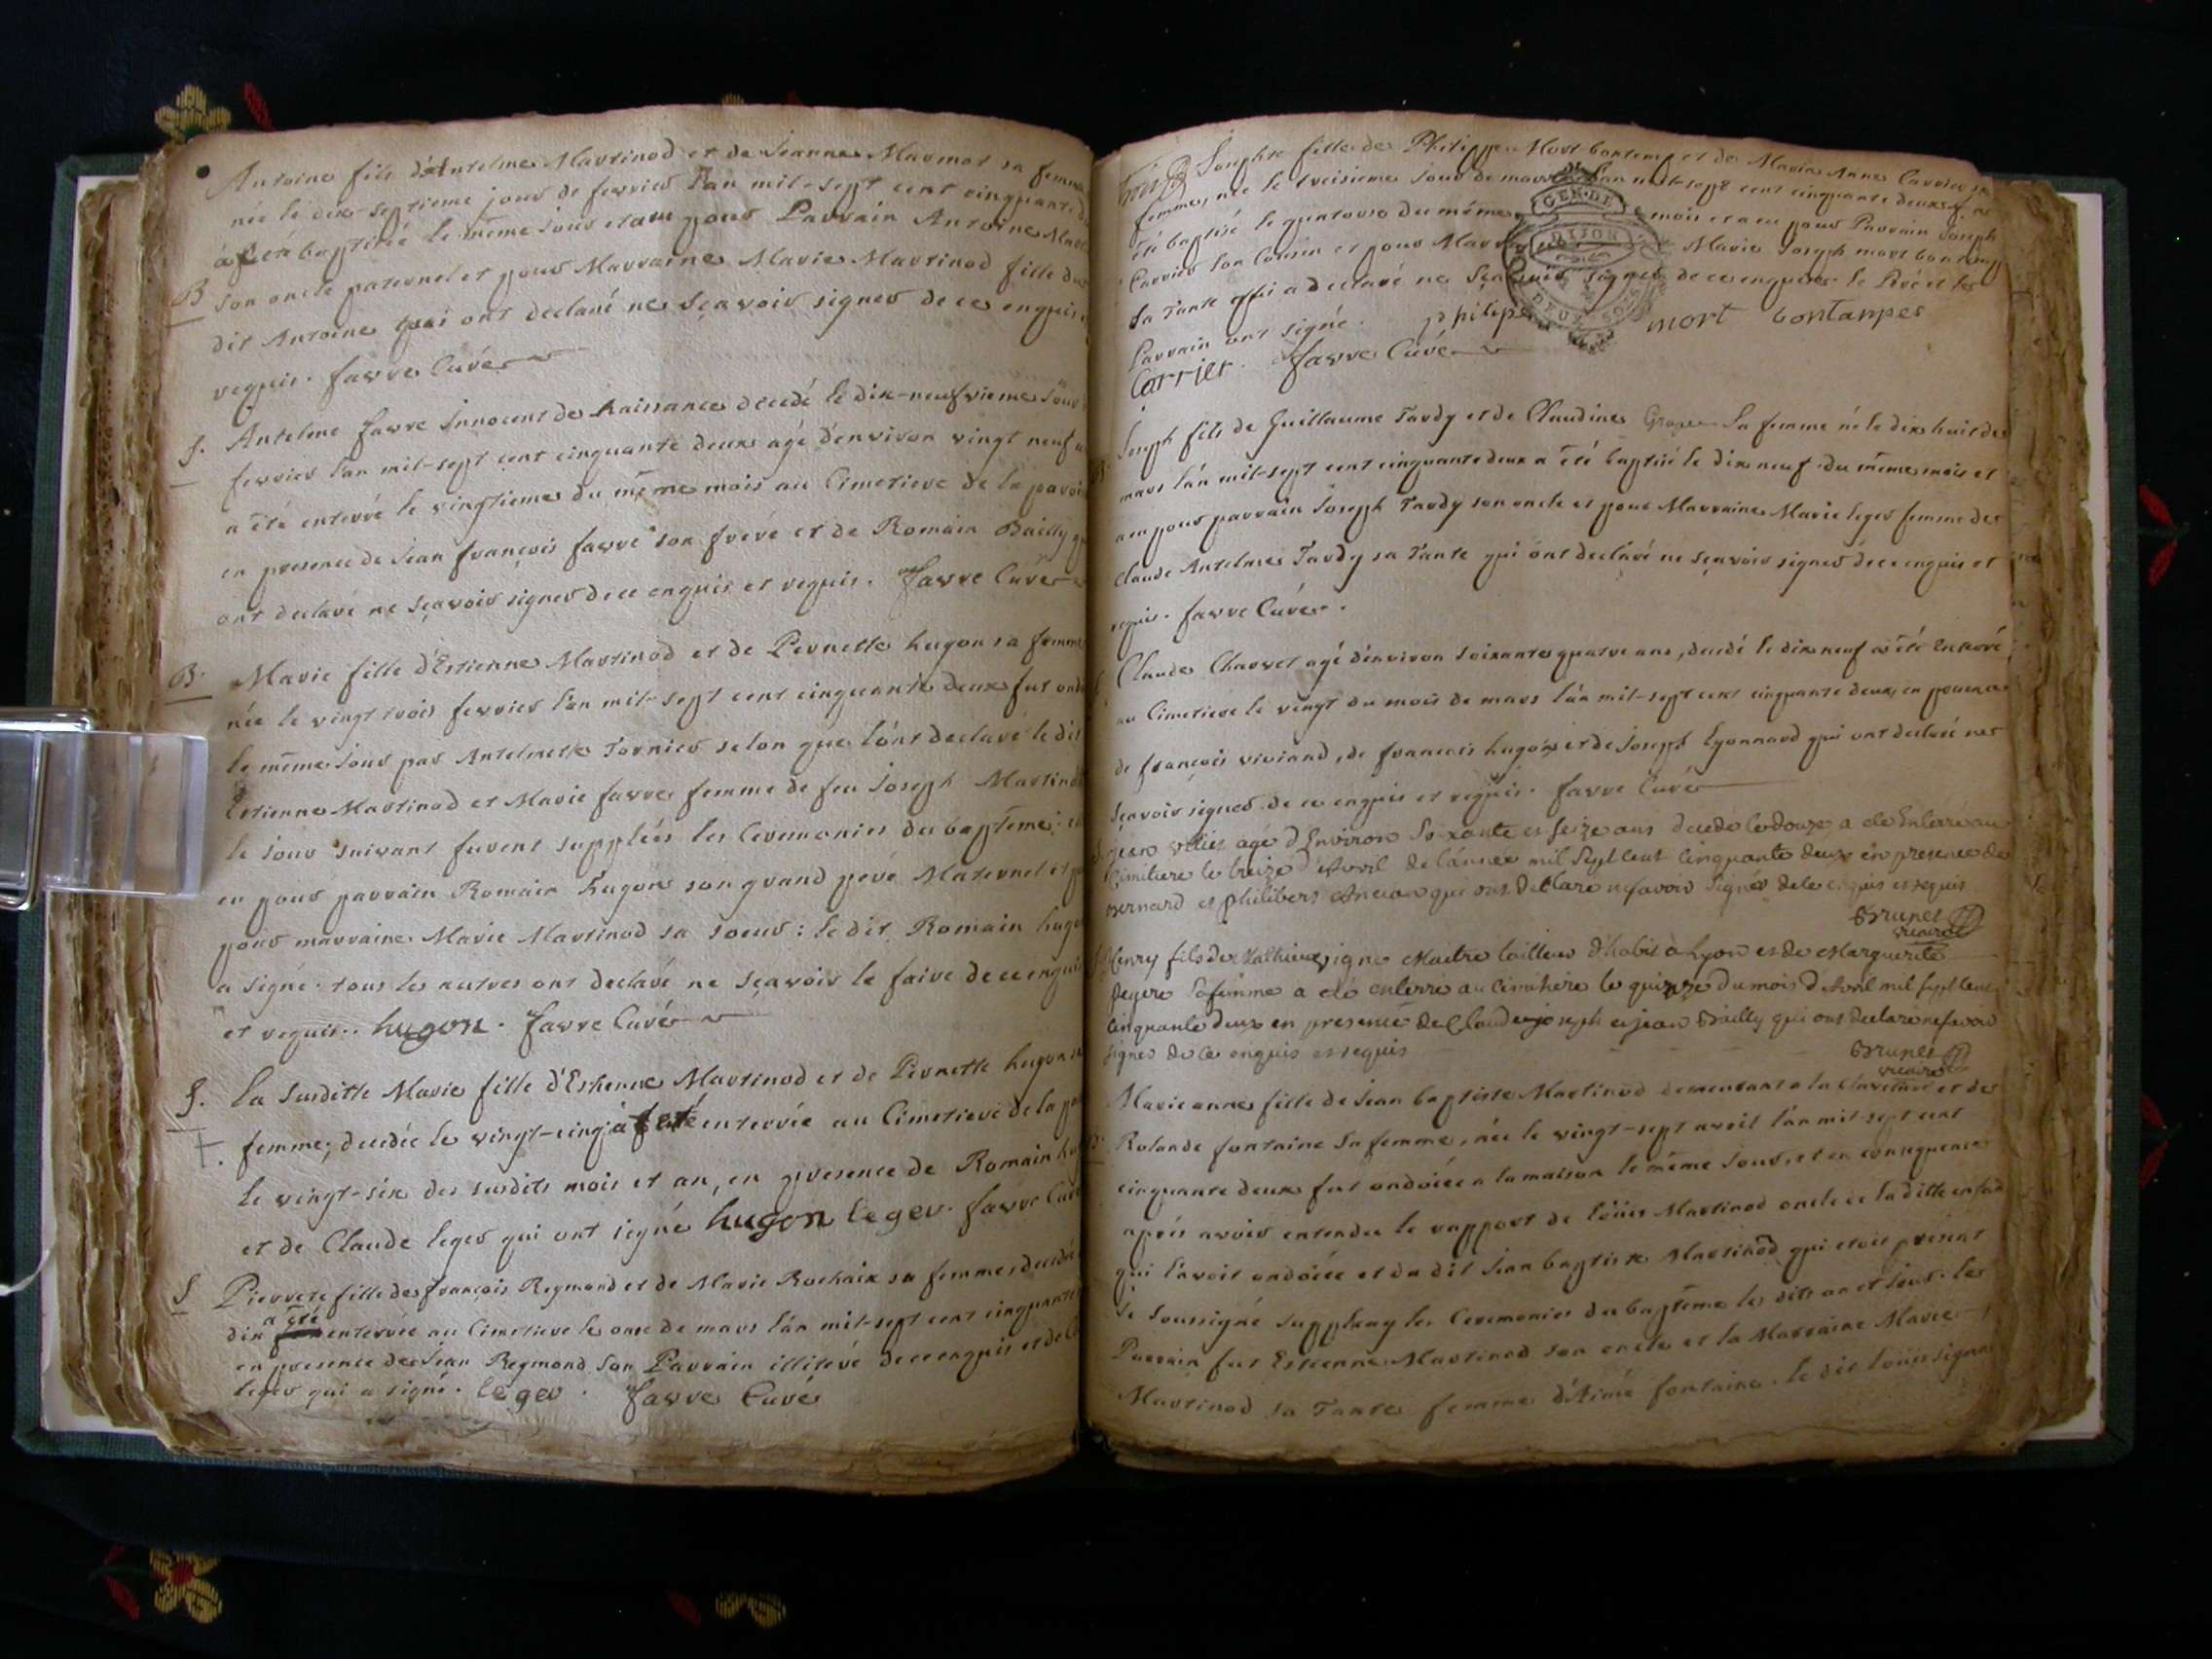 Antoine fils d'Antelme Martinod et de Jeanne Marmot sa femme
née le dix-septieme jour de fevrier l'an mil-sept cent cinquante d
a été baptisé le même jour et a eu pour Parrain Antoine Mart
B son oncle paternel et pour Marraine Marie Martinod fille du
dit Antoine qui ont declaré ne sçavoir signer de ce enquis
requis. favre Curé
S. Antelme favre innocent de naissance decedé le dix-neufvieme jour
fevrier l'an mil-sept cent cinquante deux agé d'environ vingt neuf a
a été enterré le vingtieme du même mois au Cimetiere de la parois
en presence de Jean françois favre son frere et de Romain Bailly q
ont declaré ne sçavoir signer de ce enquis et requis. favre Curé
B. Marie fille d'Estienne Martinod et de Pernette hugon sa femme
née le vingt trois fevrier l'an mil-sept cent cinquante deux fut ondo
le même jour par Antelmette Tornier selon que l'ont declaré le dit
Estienne Martinod et Marie favre femme de feu Joseph Martinod
le jour suivant furent suppléés les Ceremonies du baptême: et
eu pour parrain Romain hugon son grand pere Maternel et p
pour marraine Marie Martinod sa soeur: le dit Romain hugo
a signé. tous les autres ont declaré ne sçavoir le faire de ce enquis
et requis. hugon. favre Curé
S. La susditte Marie fille d'Estienne Martinod et de Pernette hugon sa
femme; decedée le vingt-cinq a été enterrée au Cimetiere de la pa
le vingt-six des susdits mois et an, en presence de Romain hug
et de Claude leger qui ont signé hugon leger. favre Curé
S Pierrete fille de françois Reymond et de Marie Rochaix sa femme decedée
a été
dix enterrée au Cimetiere le onze de mars l'an mil-sept cent cinquante
en presence de Jean Reymond son Parrain illiteré de ce enquis et de Cl
leger qui a signé. leger. favre Curé
Josephte fille de Philippe Mort bontemp et de Marie Anne Carrier sa
femme, née le treisieme jour de mars l'an mil-sept cent cinquante deux a
GEN. DE
été baptisé le quatorze du même mois et a eu pour Parrain Joseph
DIJON
Carrier son Cousin et pour Marraine Marie Joseph mort bontemp
sa Tante qui a declaré ne sçavoir signer de ce enquise. le Pere et le
DEUX SOLS
Parrain ont signé. philipe mort bontanpes
Carrier. favre Curé
Joseph fils de Guillaume Tardy et de Claudine sa femme né le dix huit de
mars l'an mil-sept cent cinquante deux a été baptisé le dix neuf du même mois et
a eu pour parrain Joseph Tardy son oncle et pour Marraine Marie leger femme de
Claude Antelme Tardy sa Tante qui ont declaré ne sçavoir signer de ce enquis et
requis. favre Curé.
Claude Charvet agé d'environ soixante quatre ans, decedé le dix neuf a été Enterré
au Cimetiere le vingt du mois de mars l'an mil-sept cent cinquante deux, en presence
de françois viviand, de francois hugon et de Joseph Eyonnard qui ont declaré ne
sçavoir signer de ce enquis et requis. favre Curé
jean agé d'Environ soixante et seize ans decedé le douze a eté Enterré au
Cimitiere le treize d'Avril de l'année mil Sept Cent Cinquante deux en presence de
Bernard et philibert qui ont declaré ne savoir signer de ce enquis et requis
Brunet
vicaire
Henry fils de Mathieu vigne Maitre tailleur d'habit a Lyon et de Marguerite
sa femme a eté enterré au cimitiere le quinze du mois d'Avril mil sept cent
Cinquante deux en presence de Claude joseph et jean Bailly qui ont declaré ne savoir
signer de ce enquis et requis
Brunet
vicaire
Marie anne fille de Jean baptiste Martinod demeurant a la Claveliere et de
B. Rolande fontaine sa femme, née le vingt-sept avril l'an mil-sept cent
cinquante deux fut ondoiée a la maison le même jour, et en consequence
aprés avoir entendu le rapport de loüis Martinod oncle de la ditte enfan
qui l'avoit ondoiée et du dit Jean baptiste Martinod qui etoit present
Je soussigné suppleay les Ceremonies du baptême les dits an et jour. le
Parrain fut Estienne Martinod son oncle et la Marraine Marie
Martinod sa Tante femme d'Aimé fontaine. le dit loüis signa